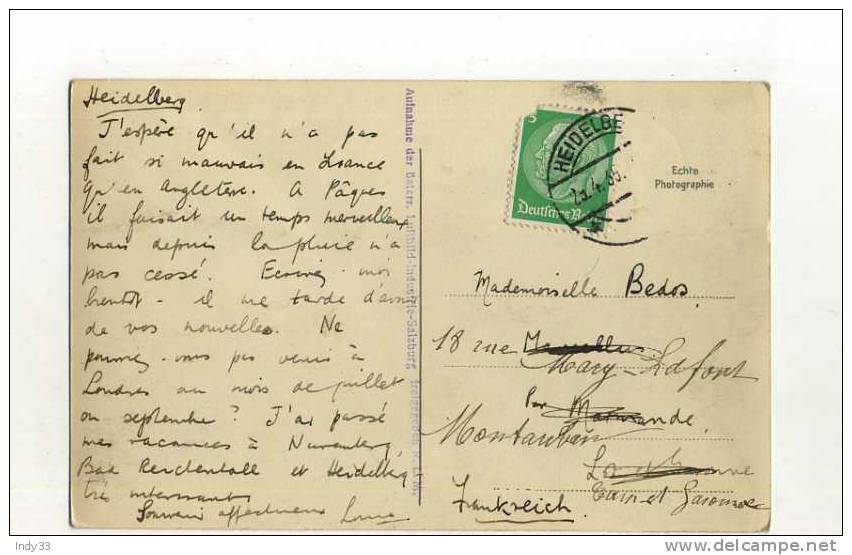 Heidelberg
J'espère qu'il n'a pas
fait si mauvais en France
qu'en Angleterre. A Pâques
il faisait un temps merveilleux
mais depuis la pluie n'a
pas cessé. Ecrivez-moi
bientôt - il me tarde d'avoir
de vos nouvelles. Ne
pourrez-vous pas venir à
Londres au mois de juillet
ou septembre? J'ai passé
mes vacances à Nuremberg,
Bad Reichenhall et Heidelberg
très intéressant
Souvenir affectueux
Aufnahme der Österr. Luftbild-Industrie-Salzburg freigegeben
HEIDELBE
Deutsches Reich
Echte
Photographie
Mademoiselle Bedos
18 rue
Mary-Lafont
Par Marmande
Montauban
Lot et Garonne
Tarn et Garonne
Frankreich
Indy33
www.delcampe.net